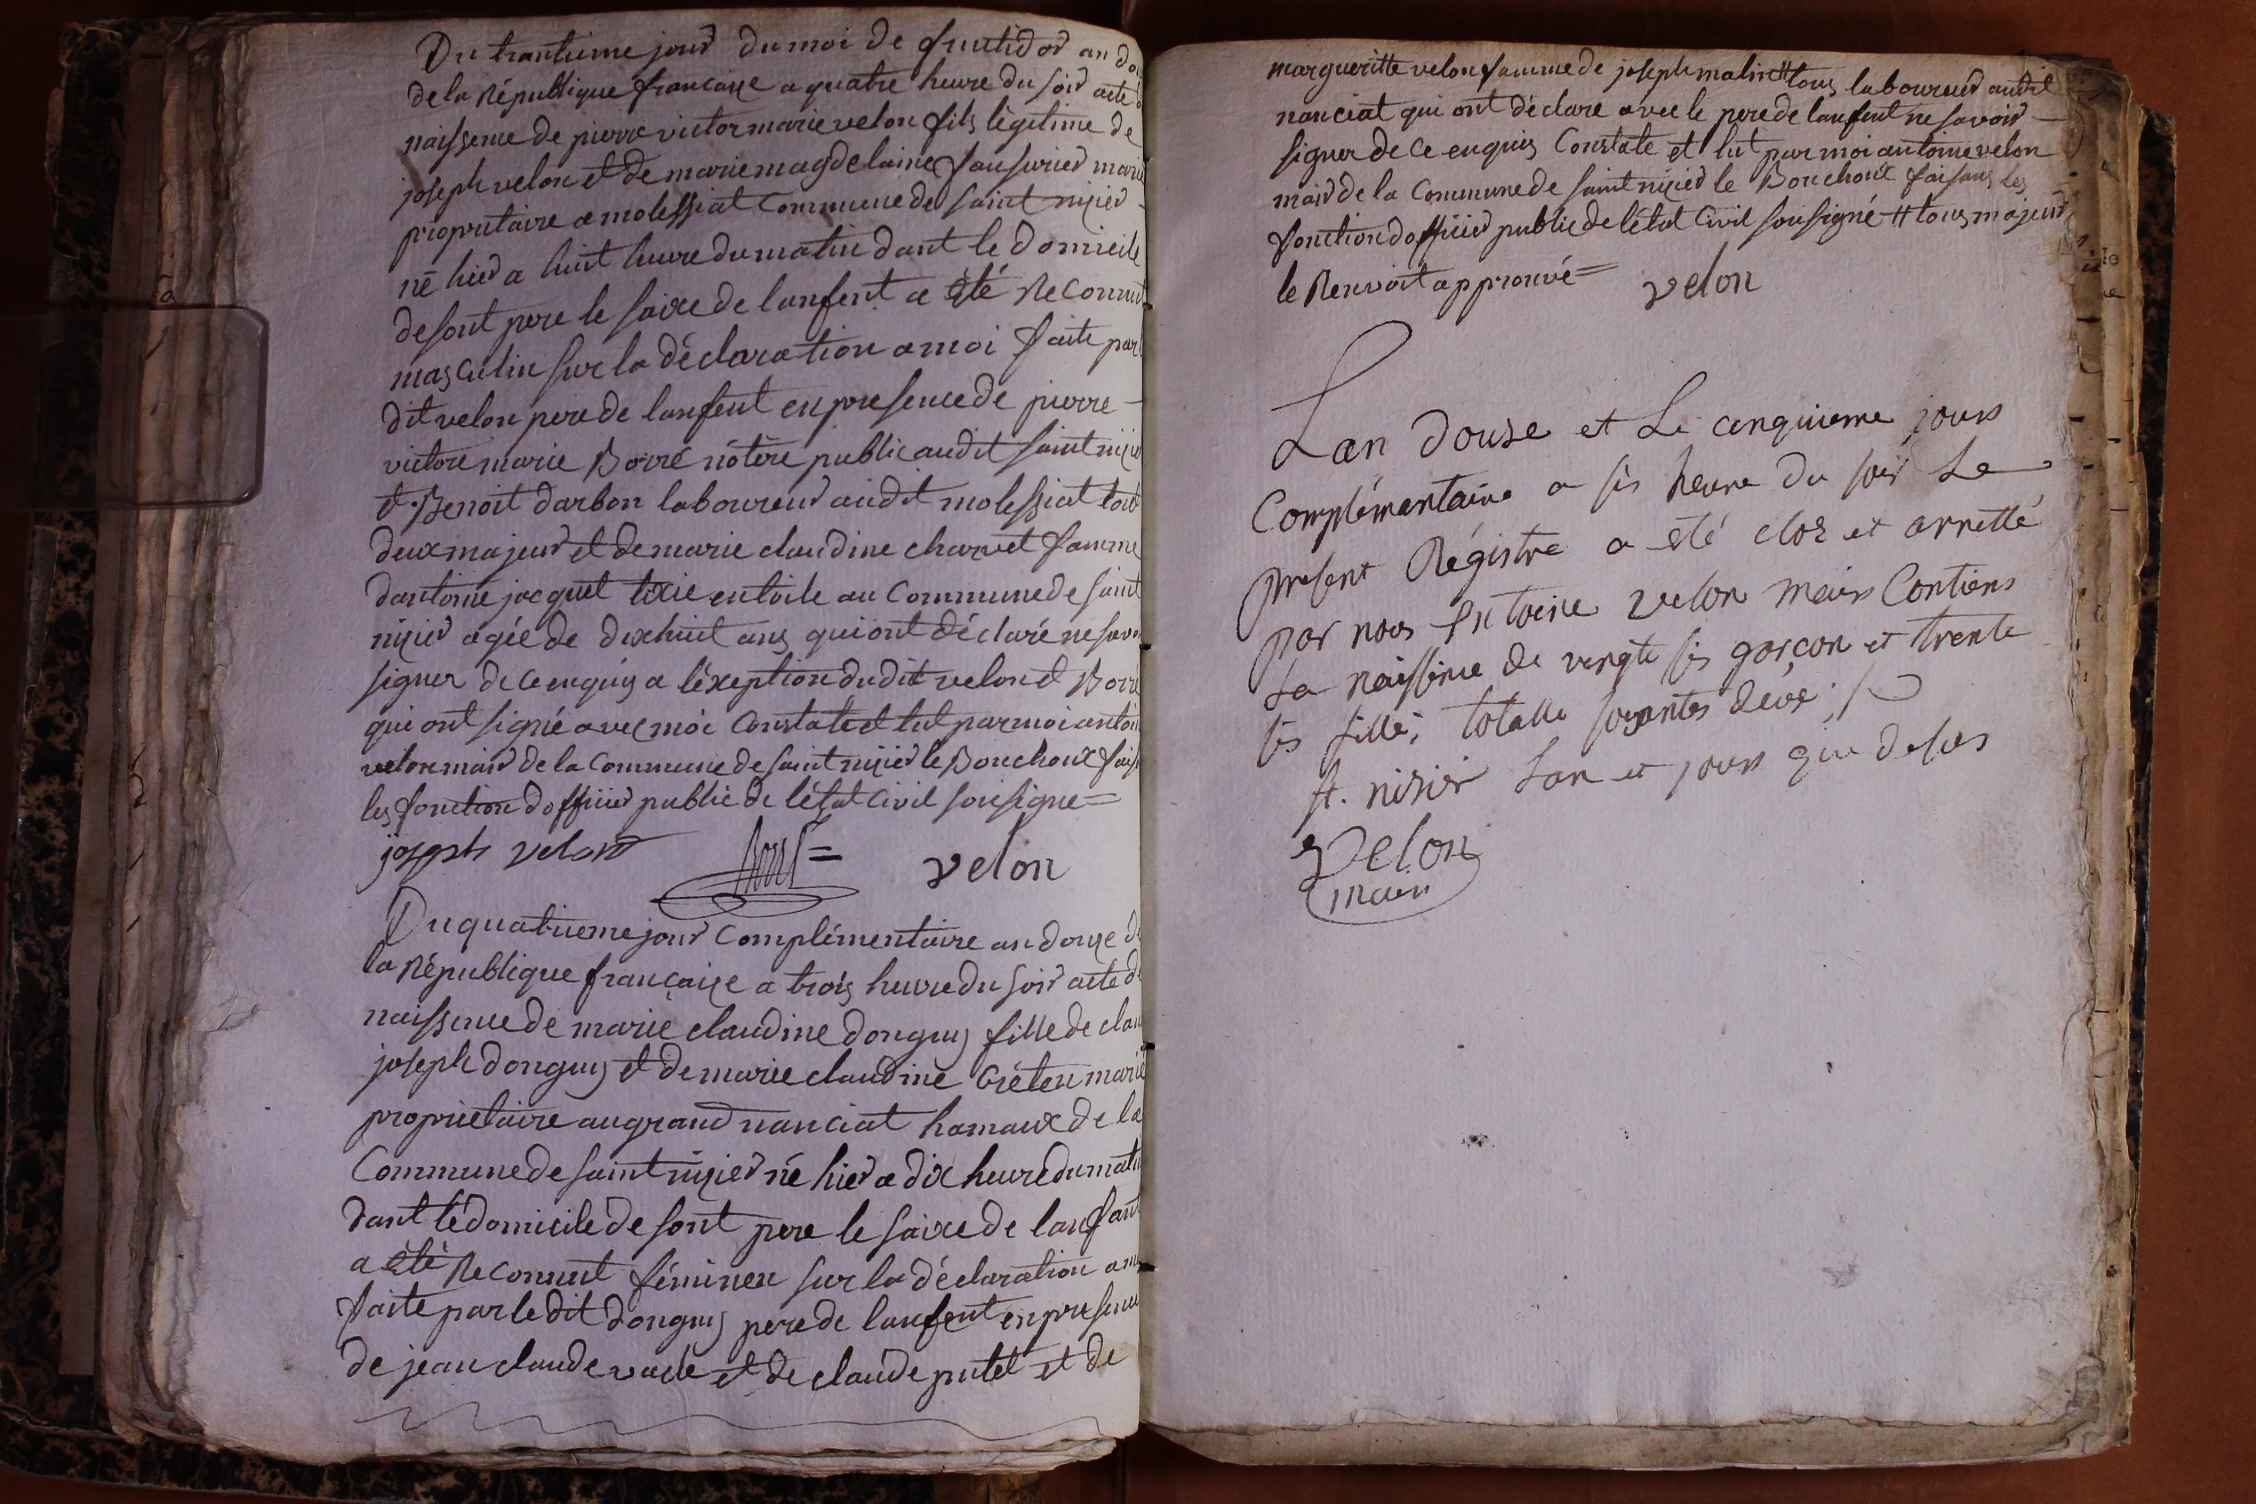 Du trantieme jour du moi de fructidor an do
de la République francaize a quatre heure du soir acte d
naissence de pierre victor marie velon fils légitime de
joseph velon et de marie magdelaine marié
propriétaire a molessiat commune de saint nizier
né hier a huit heure du matin dant le domicile
de sont pere le saixe de lanfent a été Reconnut
masculin sur la déclaration a moi faite par
dit velon pere de lanfent en presence de pierre
victore marie Borré nótere public audit saint nizier
et Benoit darbon laboureur audit molessiat tout
deux majeur et de marie claudine charvet famme
dantoine jacquet tixie en toile au Commune de saint
nizier agée de dixhuit ans qui ont déclaré ne savo
signer de ce enquis a léxeption dudit velon et Borré
qui ont signé avec moi Constate et lut par moi antoi
velon mair de la Commune de saint nizier le Bouchoux fais
les fonction dofficier public de létat civil sousigne =
joseph velon Borré = velon
Du quatrieme jour Complémentaire an douze d
la République francaize a trois heure du soir acte d
naissence de marie claudine donguy fille de clau
joseph donguy et de marie claudine Créten marié
proprietaire au grand nanciat hamaux de la
Commune de saint nizier né hier a dix heure du mati
dant lé domicile de sont pere le saixe de lanfant
a été Reconnut féminen sur la déclaration a mo
faite par le dit donguy pere de lanfent en presence
de jean claude vacle et de claude putet et de
margueritte velon famme de joseph malin # tous laboureur audit
nanciat qui ont déclare avec le pere de lanfent ne savoir
signer de ce enquis Constate et lut par moi antoine velon
mair de la Commune de saint nizier le Bouchoux faisans les
fonction dofficier public de létat Civil sousigné # tous majeur
le Renvoit approuvé = velon
Lan douse et Le cinquieme jours
Complémentaire a sis heure du soir Le
present Régistre a eté clos et arretté
par nous Entoine velon mair Contiens
La naissence de vingte sis garçon et trente
sis fille; totalle soyantes deux
st. nisier Lan et jours que desus
Velon
mair